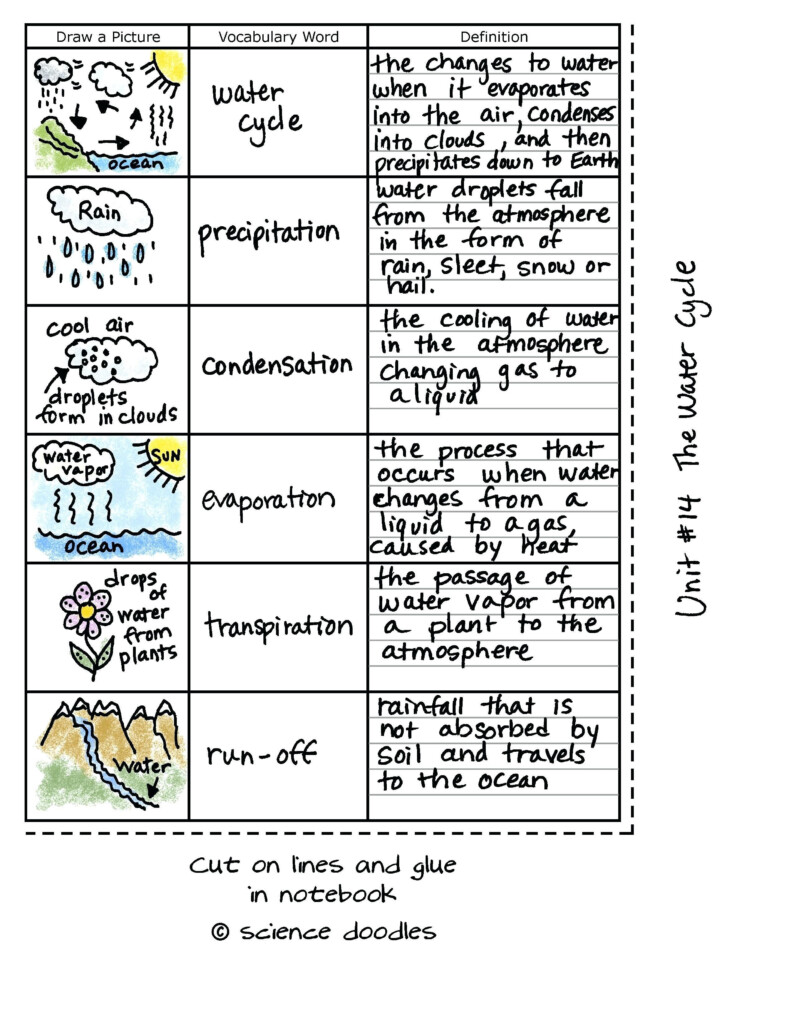 Draw a Picture
Vocabulary Word
Definition
ocean
water
cycle
the changes to water
when it evaporates
into the air, condenses
into clouds, and then
precipitates down to Earth
Rain
precipitation
water droplets fall
from the atmosphere
in the form of
rain, sleet, snow or
hail.
cool air
droplets
form in clouds
condensation
the cooling of water
in the atmosphere
changing gas to
a liquid
water
vapor
SUN
ocean
evaporation
the process that
occurs when water
changes from a
liquid to a gas,
caused by heat
drops
of
water
from
plants
transpiration
the passage of
water vapor from
a plant to the
atmosphere
water
run-off
rainfall that is
not absorbed by
soil and travels
to the ocean
Unit #14 The Water Cycle
Cut on lines and glue
in notebook
© science doodles